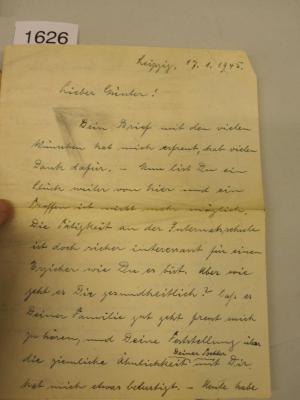 1626
Leipzig, 17.1.1945.
Lieber Günter!
Dein Brief mit den vielen
Wünschen hat mich erfreut, hab vielen
Dank dafür. – Nun bist Du ein
Stück weiter von hier und ein
Treffen ist nicht mehr möglich.
Die Tätigkeit an der Internatsschule
ist doch sicher interessant für einen
Erzieher wie Du es bist. Aber wie
geht es Dir gesundheitlich? Daß es
Deiner Familie gut geht freut mich
zu hören, und Deine Feststellung über
die ziemliche Ähnlichkeit Deiner Tochter mit Dir,
hat mich etwas belustigt. – Heute habe